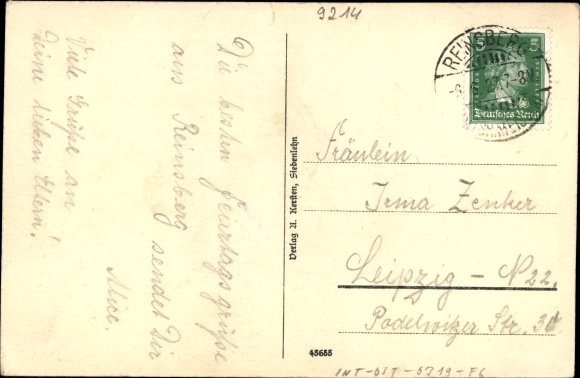 9214
Die besten Feiertagsgrüße
aus Reinsberg sendet Dir
Alice.
Viele Grüße an
Deine lieben Eltern!
Verlag A. Kersten, Siebenlehn
REINSBERG
5
Deutsches Reich
Fräulein
Irma Zenker
Leipzig – N 22.
Podelwitzer Str.
45655
INT-OST-0719-F6